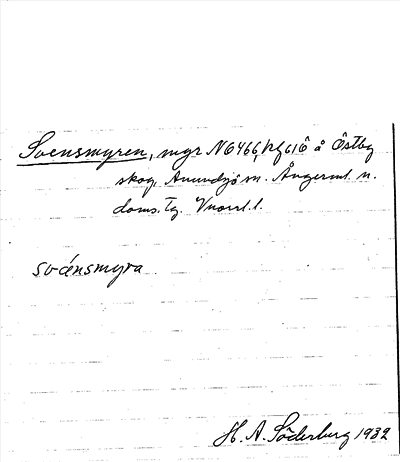 Svensmyren, myr N6466, å Östby
skog, Anundsjö sn. Ångerml. n.
doms. Tg. Vnorrl. l.
svénsmyra
H. A. Söderburg 1932